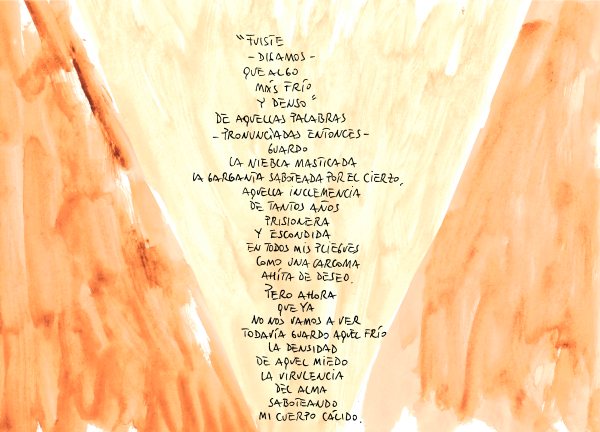 "FUISTE
- DIGAMOS -
QUE ALGO
MÁS FRÍO
Y DENSO"
DE AQUELLAS PALABRAS
- PRONUNCIADAS ENTONCES -
GUARDO
LA NIEBLA MASTICADA
LA GARGANTA SABOTEADA POR EL CIERZO,
AQUELLA INCLEMENCIA
DE TANTOS AÑOS
PRISIONERA
Y ESCONDIDA
EN TODOS MIS PLIEGUES
COMO UNA CARCOMA
AHÍTA DE DESEO.
PERO AHORA
QUE YA
NO NOS VAMOS A VER
TODAVÍA GUARDO AQUEL FRÍO
LA DENSIDAD
DE AQUEL MIEDO
LA VIRULENCIA
DEL ALMA
SABOTEANDO
MI CUERPO CÁLIDO.